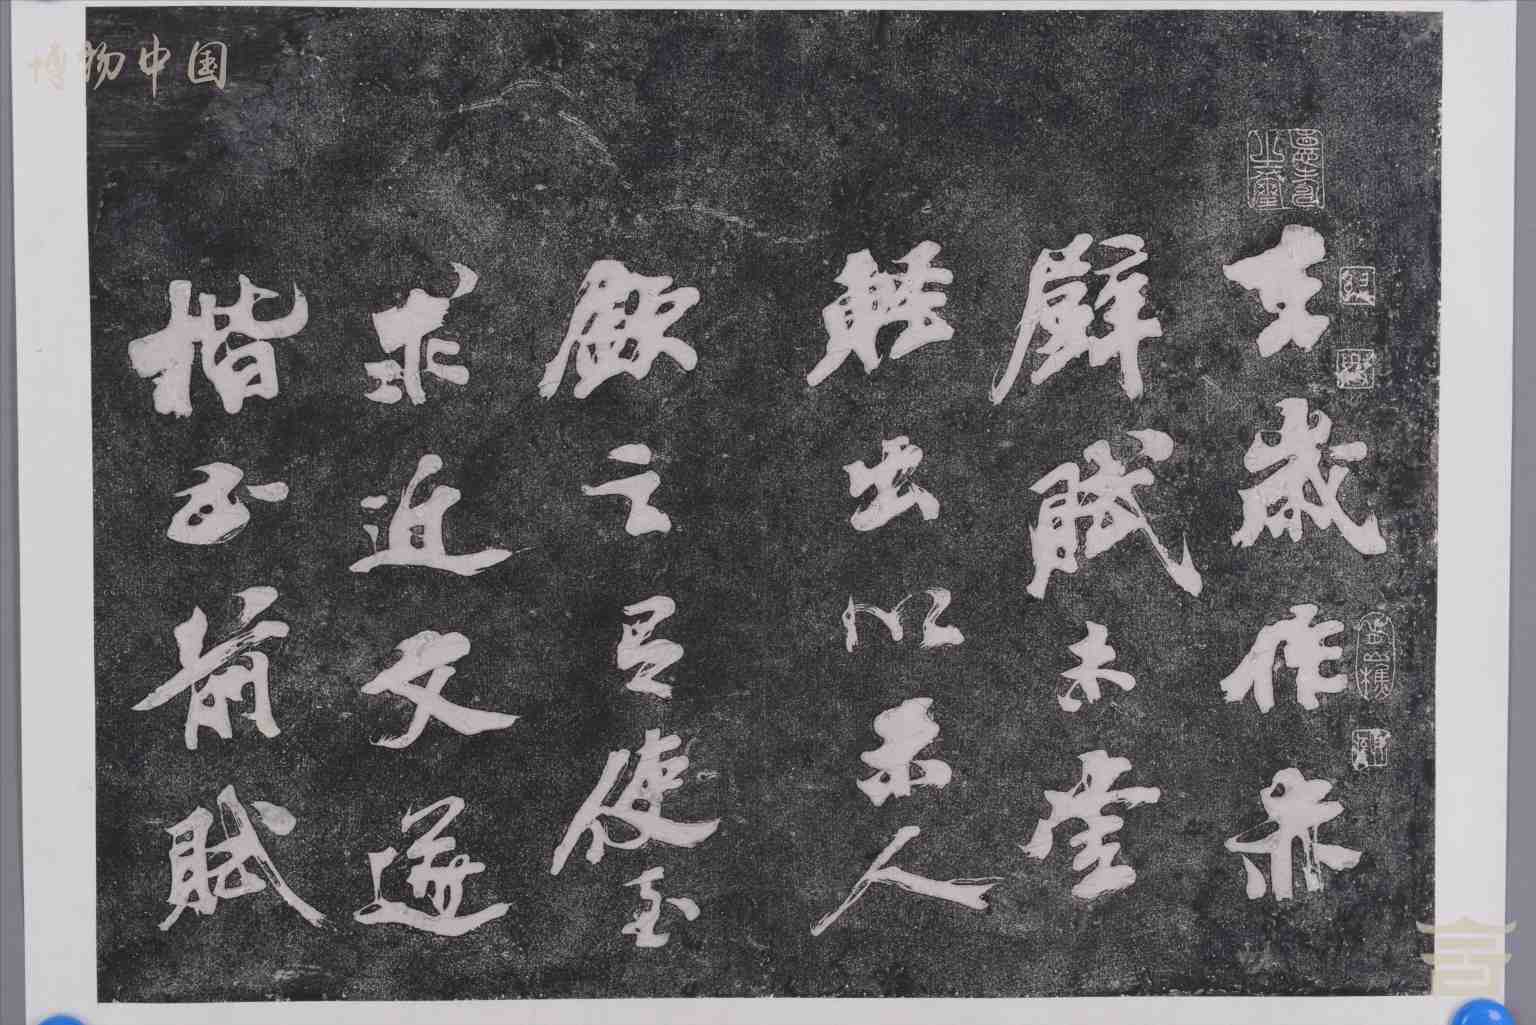 博物中国
去歲作赤
壁賦未嘗
輕出以示人
欽之有使至
求近文遂
楷書前賦